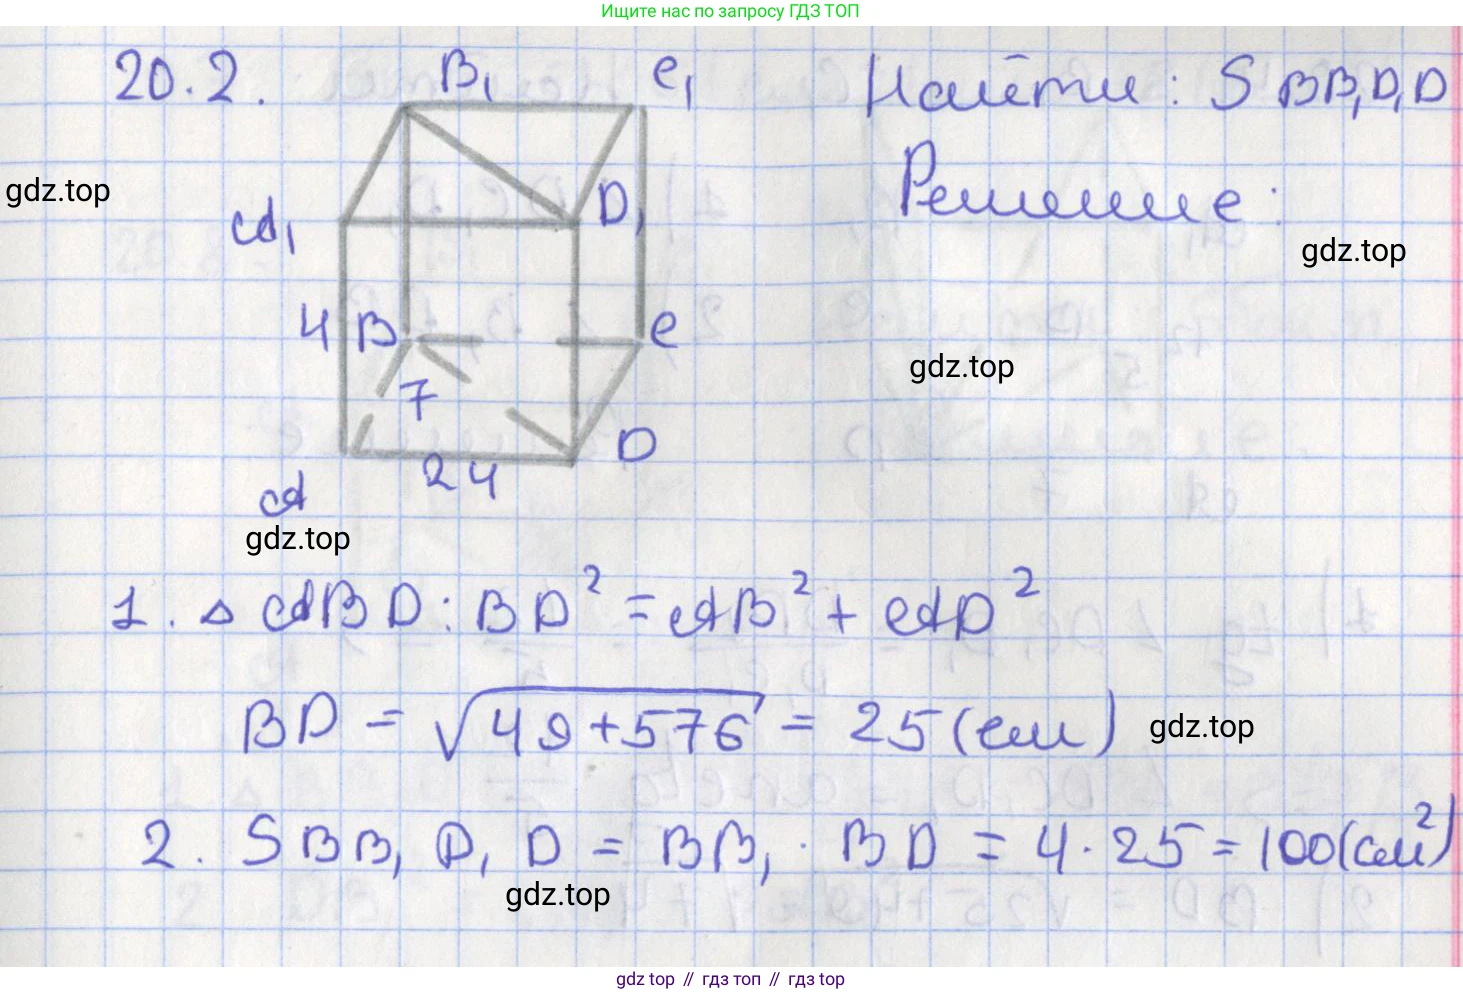 Ищите нас по запросу ГДЗ ТОП
20.2.
B₁
C₁
Найти: S BB₁D₁D
gdz.top
Решение:
A₁
D₁
gdz.top
4
B
C
gdz.top
7
D
24
A
gdz.top
1. △ ABD: BD² = AB² + AD²
BD = √49+576 = 25 (см)
gdz.top
2. S BB₁D₁D = BB₁ · BD = 4·25 = 100 (см²)
gdz.top
gdz top // гдз топ // gdz top